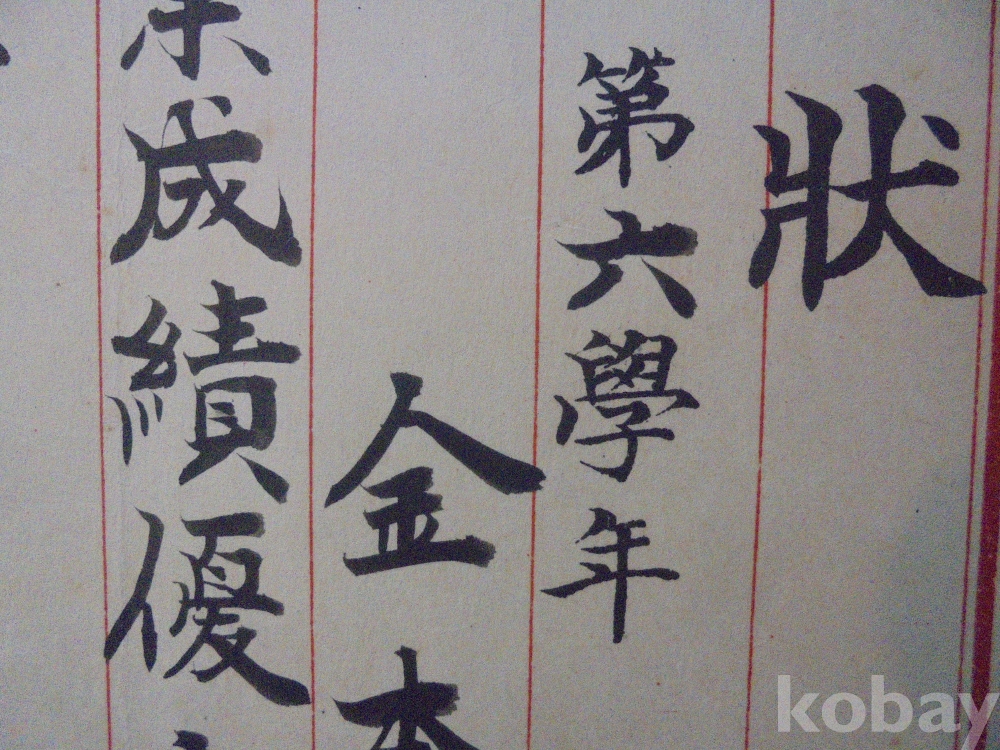 狀
第六學年
金
成績優
kobay